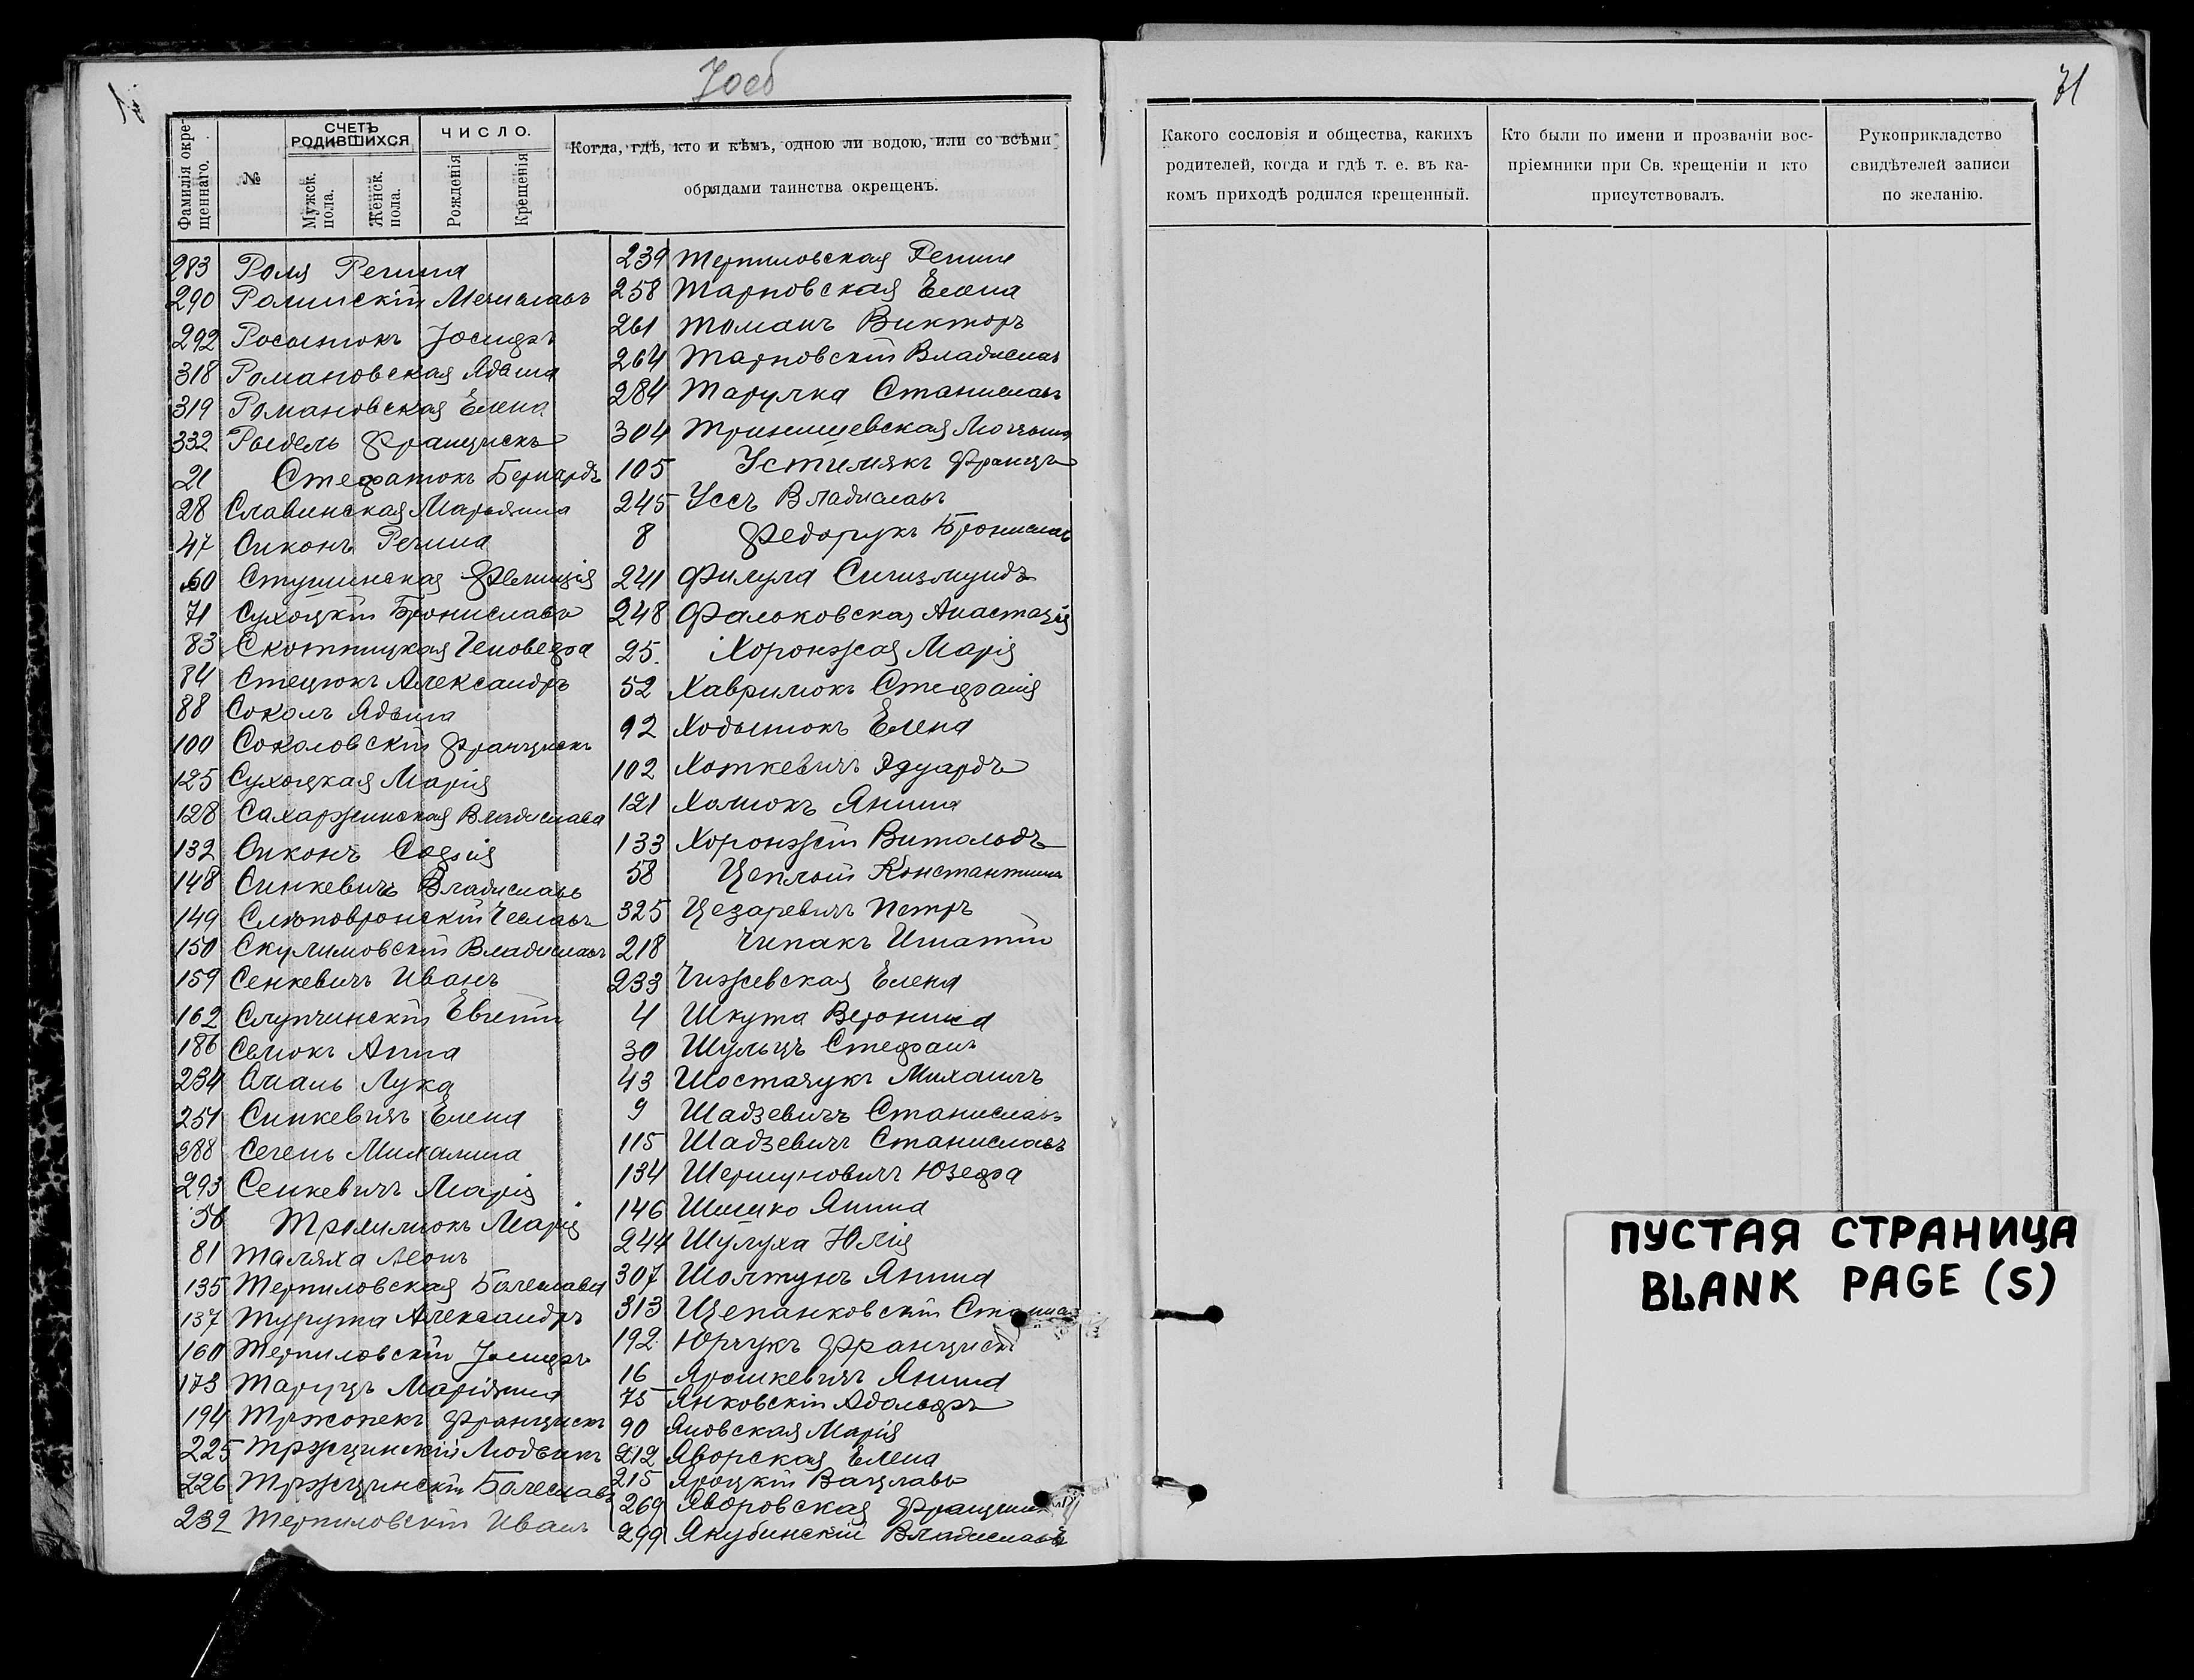 70об
71
Фамилія окрещеннаго.
№
СЧЕТЪ РОДИВШИХСЯ
Мужск. пола.
Женск. пола.
ЧИСЛО.
Рожденія
Крещенія
Когда, гдѣ, кто и кѣмъ, одною ли водою, или со всѣми
обрядами таинства окрещенъ.
283 Роля Регина
290 Мечиславъ
292 Іосифъ
318 Романовская Ядвига
319 Романовская Елена
332 Рыдель Францискъ
21 Стефанюкъ Бернардъ
28 Славинская Марьянна
47 Сиконь Регина
60 Стушинская Фелиція
71 Сухоцкій Брониславъ
83 Скотницкая Геновефа
84 Стецюкъ Александръ
88 Соколъ Ядвига
100 Соколовскій Францискъ
125 Сухоцкая Марія
128 Сахаржинская Владислава
132 Сиконь Софія
148 Синкевичъ Владиславъ
149 Слѣповронскій Чеславъ
150 Скулимовскій Владиславъ
159 Сенкевичъ Иванъ
162 Слупчинскій Евгеній
186 Анна
234 Лука
251 Синкевичъ Елена
288 Сегень Михалина
293 Сенкевичъ Марія
56 Трохимюкъ Марія
81 Таляха Леонъ
135 Терпиловская Болеслава
137 Турута Александръ
160 Терпиловскій Іосифъ
173 Таруцъ Маріянна
194 Тржопекъ Францискъ
225 Тржцинскій Людвикъ
226 Тржцинскій Болеславъ
232 Терпиловскій Иванъ
239 Терпиловская Регина
258 Тарновская Елена
261 Томанъ Викторъ
264 Тарновскій Владиславъ
284 Таручка Станиславъ
304
105 Устимякъ Францъ
245 Уссъ Владиславъ
8 Федорукъ Брониславъ
241 Фицула Сигизмундъ
248 Фальковская Анастазія
25. Хоронжая Марія
52 Хаврилюкъ Стефанія
92 Ходынюкъ Елена
102 Хоткевичъ Эдуардъ
121 Холюкъ Янина
133 Хоронжій Витольдъ
58 Цеплой Константинъ
325 Цезаревичъ Петръ
218 Чипакъ Игнатій
233 Чижевская Елена
4 Шкута Вероника
30 Шульцъ Стефанъ
43 Шостачукъ Михаилъ
9 Шадзевичъ Станиславъ
115 Шадзевичъ Станиславъ
134 Шершуновичъ Юзефа
146 Шишко Янина
244 Шулуха Юлія
307 Шолтунъ Янина
313 Щепанковскій
192 Юрчукъ Францискъ
16 Ярошкевичъ Янина
75 Янковскій Адольфъ
90 Яновская Марія
212 Яворская Елена
215 Яроцкій Вацлавъ
269 Яворовская
299 Якубинскій Владиславъ
Какого сословія и общества, какихъ
родителей, когда и гдѣ т. е. въ ка-
комъ приходѣ родился крещенный.
Кто были по имени и прозваніи вос-
пріемники при Св. крещеніи и кто
присутствовалъ.
Рукоприкладство
свидѣтелей записи
по желанію.
ПУСТАЯ СТРАНИЦА
BLANK PAGE (S)